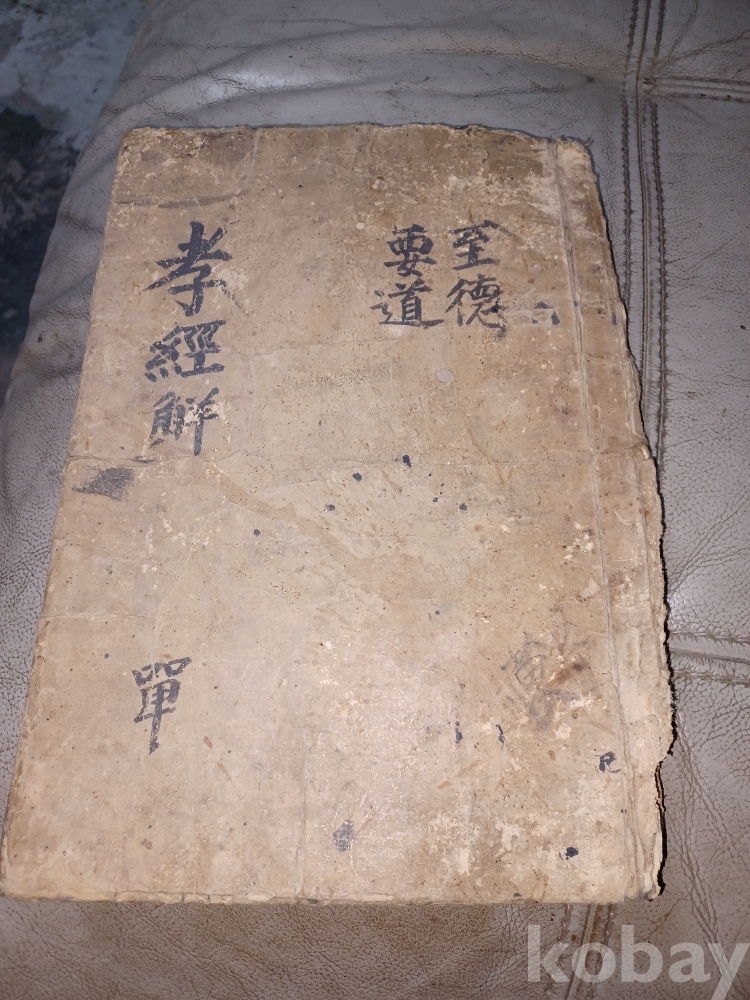 至德
要道
孝經解
單
kobay